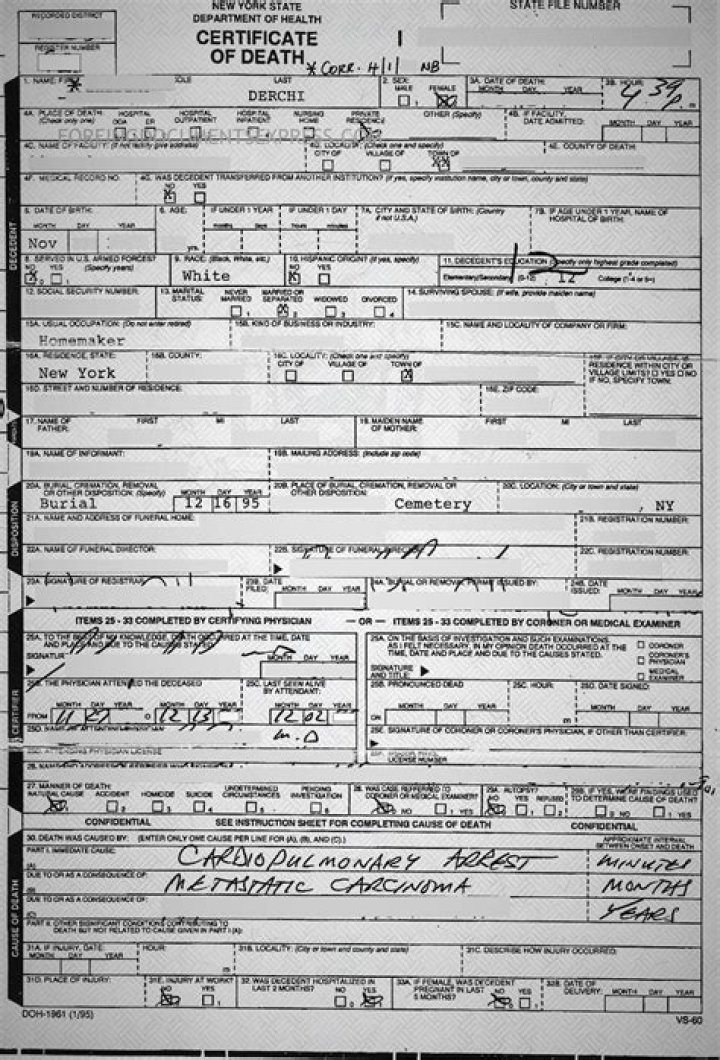 NEW YORK STATE
DEPARTMENT OF HEALTH
CERTIFICATE
OF DEATH
* CORR. 4/1/ NB
RECORDED DISTRICT
REGISTER NUMBER
STATE FILE NUMBER
1. NAME: FIRST LAST 2. SEX: MALE FEMALE 3A. DATE OF DEATH: MONTH DAY YEAR 3B. HOUR:
DERCHI 1 4 39 P m
4A. PLACE OF DEATH: (Check only one) HOSPITAL DOA ER HOSPITAL OUTPATIENT HOSPITAL INPATIENT NURSING HOME PRIVATE RESIDENCE OTHER (Specify) 4B. IF FACILITY, DATE ADMITTED: MONTH DAY YEAR
FOREIGNDOCUMENTSEXPRESS.COM
4C. NAME OF FACILITY: (If not facility give address) 4D. LOCALITY: (Check one and specify) CITY OF VILLAGE OF TOWN OF 4E. COUNTY OF DEATH:
XX
4F. MEDICAL RECORD NO. 4G. WAS DECEDENT TRANSFERRED FROM ANOTHER INSTITUTION? (If yes, specify institution name, city or town, county and state)
NO YES
X
DECEDENT
5. DATE OF BIRTH: MONTH DAY YEAR 6. AGE: yrs. IF UNDER 1 YEAR months days IF UNDER 1 DAY hours minutes 7A. CITY AND STATE OF BIRTH: (Country if not U.S.A.) 7B. IF AGE UNDER 1 YEAR, NAME OF HOSPITAL OF BIRTH:
Nov
8. SERVED IN U.S. ARMED FORCES? NO YES (Specify years) 9. RACE: (Black, White, etc.) 10. HISPANIC ORIGIN? (If yes, specify) NO YES 11. DECEDENT'S EDUCATION (Specify only highest grade completed)
X 0 1 White X Elementary/Secondary (0-12) 12 College (1-4 or 5+)
12. SOCIAL SECURITY NUMBER: 13. MARITAL STATUS: NEVER MARRIED MARRIED OR SEPARATED WIDOWED DIVORCED 14. SURVIVING SPOUSE: (If wife, provide maiden name)
1 X 2 3 4
15A. USUAL OCCUPATION: (Do not enter retired) 15B. KIND OF BUSINESS OR INDUSTRY: 15C. NAME AND LOCALITY OF COMPANY OR FIRM:
Homemaker
16A. RESIDENCE, STATE: 16B. COUNTY: 16C. LOCALITY: (Check one and specify) CITY OF VILLAGE OF TOWN OF RESIDENCE WITHIN CITY OR VILLAGE LIMITS? YES NO IF NO, SPECIFY TOWN:
New York X
16D. STREET AND NUMBER OF RESIDENCE: 16E. ZIP CODE:
17. NAME OF FATHER: FIRST MI LAST 18. MAIDEN NAME OF MOTHER: FIRST MI LAST
19A. NAME OF INFORMANT: 19B. MAILING ADDRESS: (Include zip code)
DISPOSITION
20A. BURIAL, CREMATION, REMOVAL OR OTHER DISPOSITION: (Specify) MONTH DAY YEAR 20B. PLACE OF BURIAL, CREMATION, REMOVAL OR OTHER DISPOSITION: 20C. LOCATION: (City or town and state)
Burial 12 16 95 Cemetery , NY
21A. NAME AND ADDRESS OF FUNERAL HOME: 21B. REGISTRATION NUMBER:
22A. NAME OF FUNERAL DIRECTOR: 22B. SIGNATURE OF FUNERAL DIRECTOR: 22C. REGISTRATION NUMBER:
23A. SIGNATURE OF REGISTRAR: 23B. DATE FILED: MONTH DAY YEAR 24A. BURIAL OR REMOVAL PERMIT ISSUED BY: 24B. DATE ISSUED: MONTH DAY YEAR
ITEMS 25 - 33 COMPLETED BY CERTIFYING PHYSICIAN — OR — ITEMS 25 - 33 COMPLETED BY CORONER OR MEDICAL EXAMINER
CERTIFIER
25A. TO THE BEST OF MY KNOWLEDGE, DEATH OCCURRED AT THE TIME, DATE AND PLACE AND DUE TO THE CAUSES STATED. MONTH DAY YEAR
25A. ON THE BASIS OF INVESTIGATION AND SUCH EXAMINATIONS, AS I FELT NECESSARY, IN MY OPINION DEATH OCCURRED AT THE TIME, DATE AND PLACE AND DUE TO THE CAUSES STATED.
SIGNATURE AND TITLE:
CORONER
CORONER'S PHYSICIAN
MEDICAL EXAMINER
25B. THE PHYSICIAN ATTENDED THE DECEASED 25C. LAST SEEN ALIVE BY ATTENDANT: 25B. PRONOUNCED DEAD 25C. HOUR: 25D. DATE SIGNED:
MONTH DAY YEAR MONTH DAY YEAR MONTH DAY YEAR MONTH DAY YEAR m MONTH DAY YEAR
FROM 11 27 12 13 12 02
25E. SIGNATURE OF CORONER OR CORONER'S PHYSICIAN, IF OTHER THAN CERTIFIER:
M.D
LICENSE NUMBER
27. MANNER OF DEATH: NATURAL CAUSE ACCIDENT HOMICIDE SUICIDE UNDETERMINED CIRCUMSTANCES PENDING INVESTIGATION 28. WAS CASE REFERRED TO CORONER OR MEDICAL EXAMINER? 29A. AUTOPSY? NO YES REFUSED 29B. IF YES, WERE FINDINGS USED TO DETERMINE CAUSE OF DEATH?
2 3 4 5 6 NO 1 YES 1 2 0 NO 1 YES
CONFIDENTIAL SEE INSTRUCTION SHEET FOR COMPLETING CAUSE OF DEATH CONFIDENTIAL
CAUSE OF DEATH
30. DEATH WAS CAUSED BY: (ENTER ONLY ONE CAUSE PER LINE FOR (A), (B), AND (C).) APPROXIMATE INTERVAL BETWEEN ONSET AND DEATH
PART I. IMMEDIATE CAUSE:
(A) CARDIOPULMONARY ARREST MINUTES
DUE TO OR AS A CONSEQUENCE OF:
(B) METASTATIC CARCINOMA MONTHS
DUE TO OR AS A CONSEQUENCE OF:
(C) YEARS
PART II. OTHER SIGNIFICANT CONDITIONS CONTRIBUTING TO DEATH BUT NOT RELATED TO CAUSE GIVEN IN PART I (A):
31A. IF INJURY, DATE: MONTH DAY YEAR HOUR: m 31B. LOCALITY: (City or town and county and state) 31C. DESCRIBE HOW INJURY OCCURRED:
31D. PLACE OF INJURY: 31E. INJURY AT WORK? NO YES 32. WAS DECEDENT HOSPITALIZED IN LAST 2 MONTHS? NO YES 33A. IF FEMALE, WAS DECEDENT PREGNANT IN LAST 6 MONTHS? NO YES 33B. DATE OF DELIVERY: MONTH DAY YEAR
DOH-1961 (1/95) VS-60